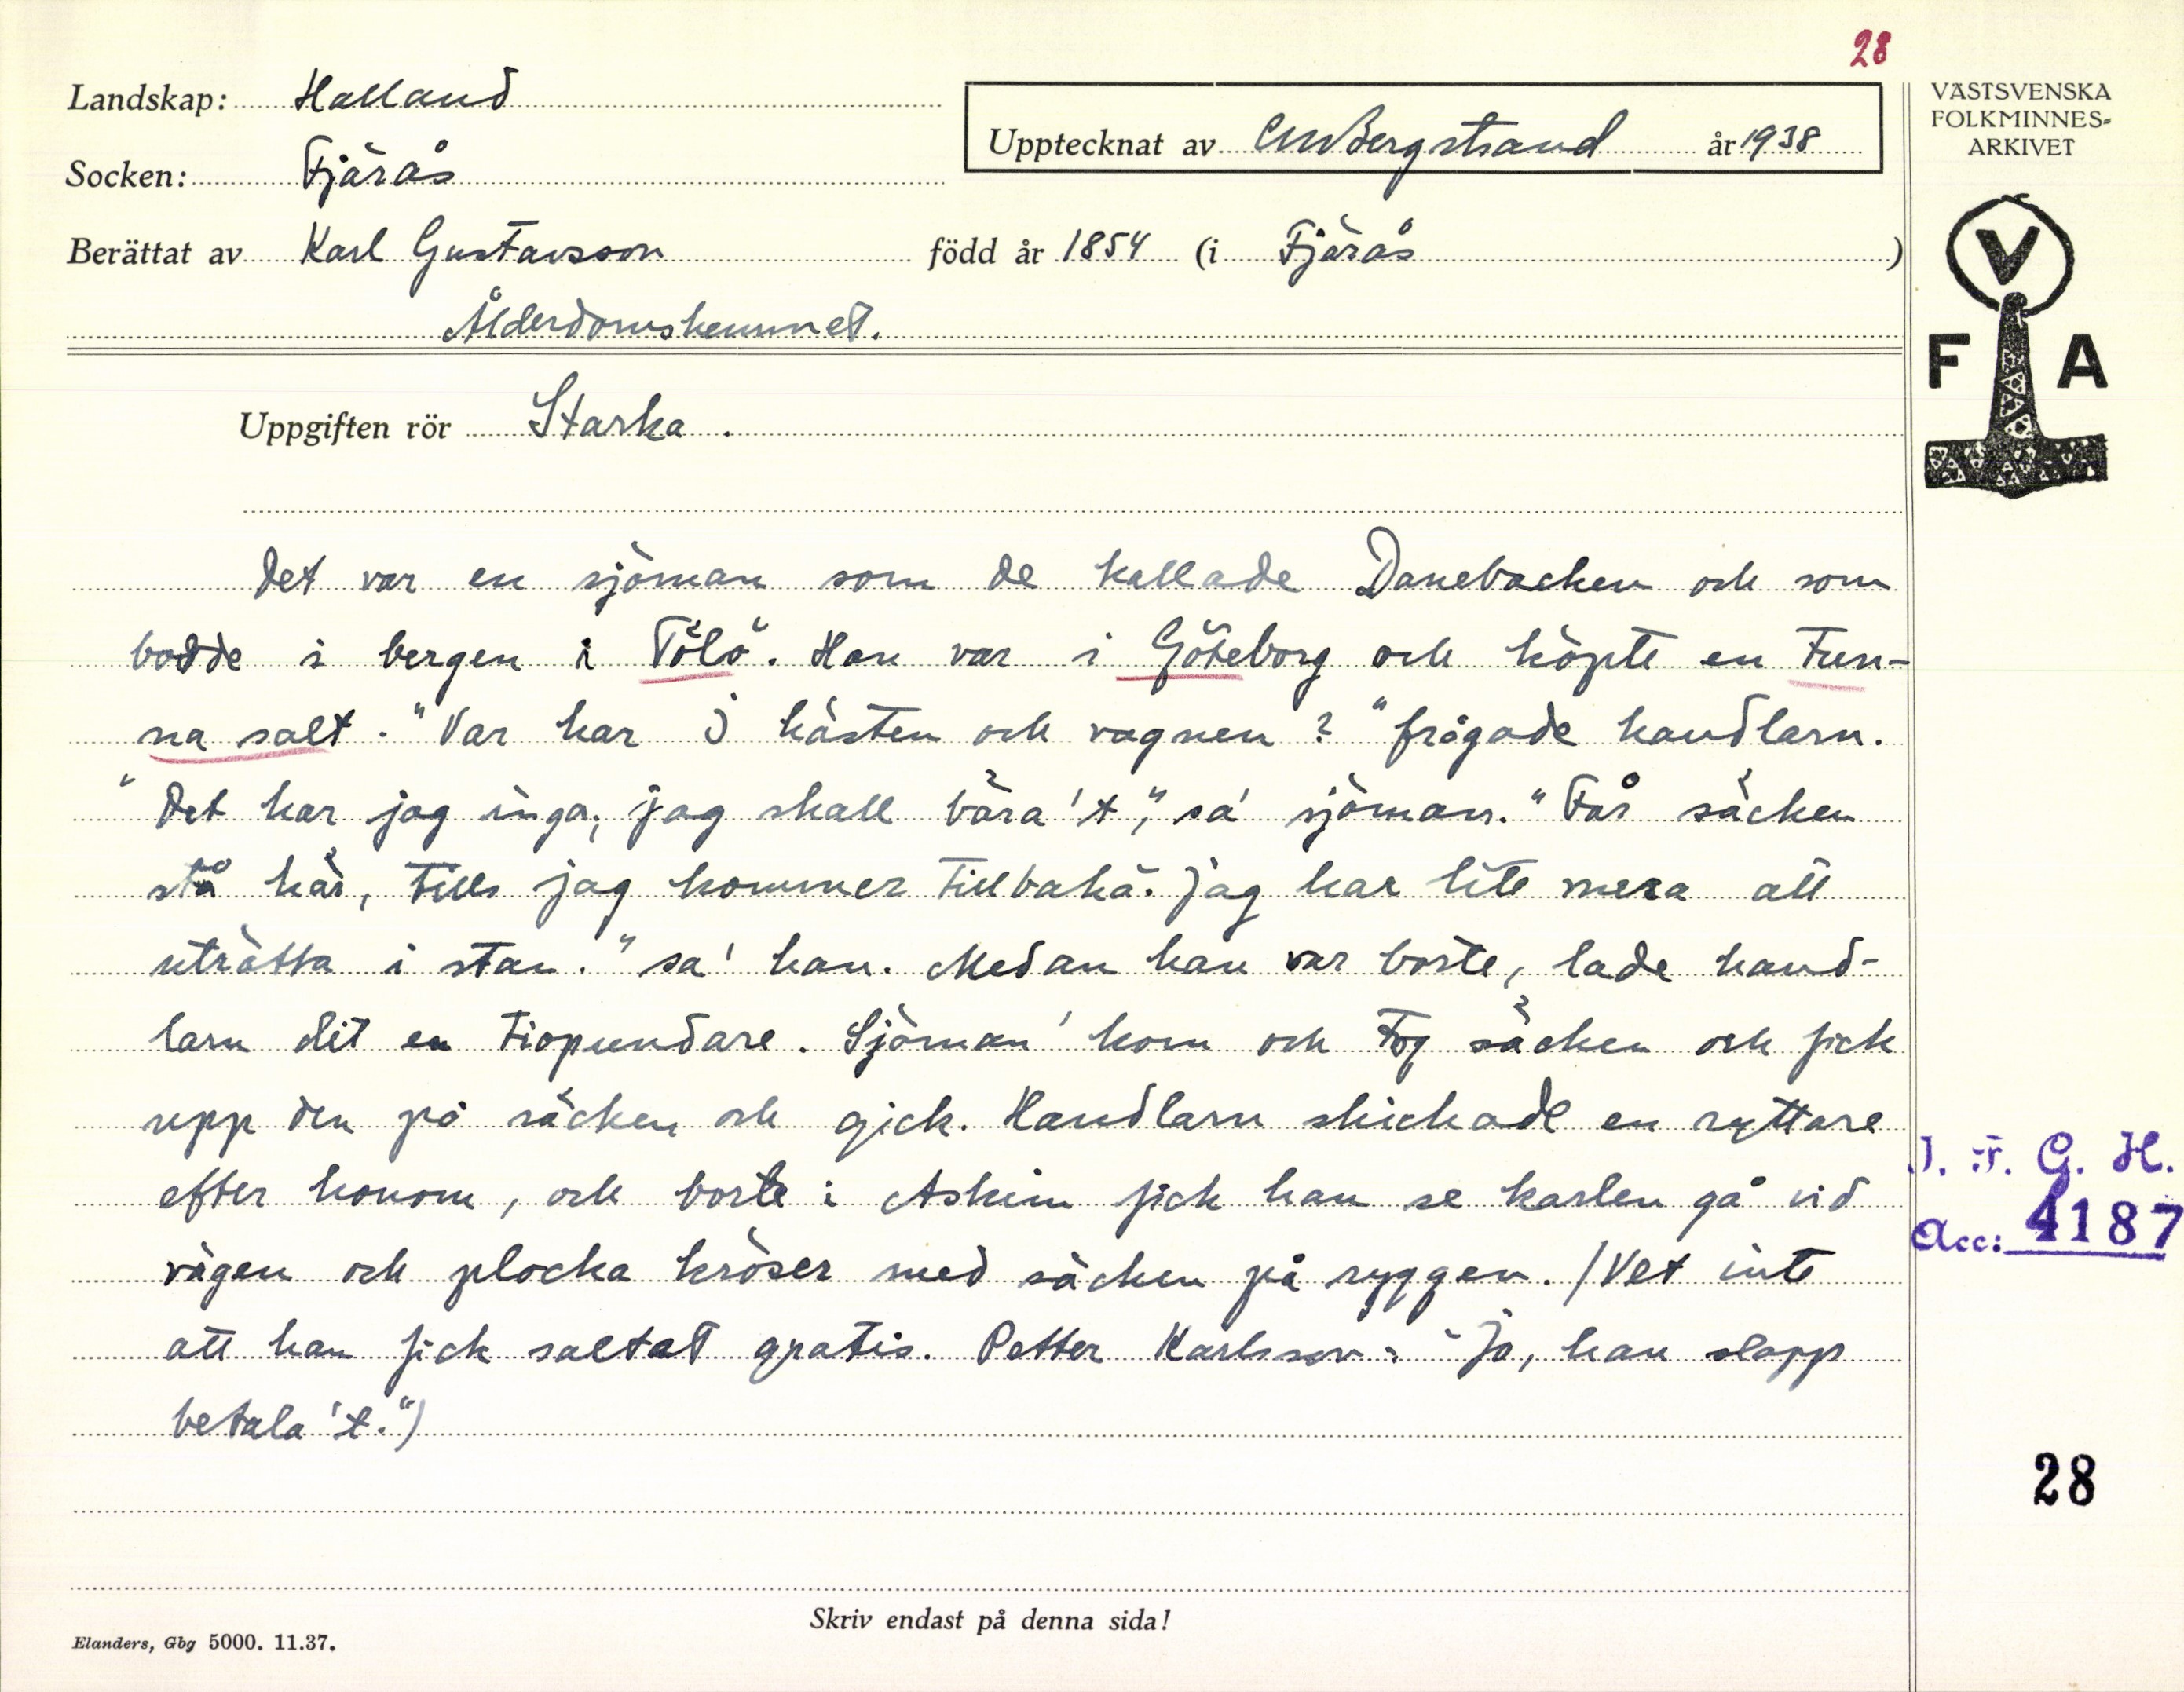 28
Landskap: Halland
Upptecknat av CMBergstrand år 1938
Socken: Fjärås
Berättat av Karl Gustavsson född år 1854 (i Fjärås)
Ålderdomshemmet.
Uppgiften rör Starka.
Det var en sjöman som de kallade Danebacken och som
bodde i bergen i Tölö. Han var i Göteborg och köpte en tun-
na salt. "Var har I hästen och vagnen?" frågade handlarn.
"Det har jag inga, jag skall bära 't," sa' sjöman. "Får säcken
stå här, tills jag kommer tillbaka. Jag har lite mera att
uträtta i stan." sa' han. Medan han var borte, lade hand-
larn dit en tiopundare. Sjöman' kom och tog säcken och fick
upp den på säcken och gick. Handlarn skickade en ryttare
efter honom, och borte i Askim fick han se karlen gå vid
vägen och plocka kröser med säcken på ryggen. /Vet inte
att han fick saltat gratis. Petter Karlsson: "Jo, han slapp
betala 't.")
VÄSTSVENSKA
FOLKMINNES-
ARKIVET
V
F A
I. F. G. H.
Acc: 4187
28
Skriv endast på denna sida!
Elanders, Gbg 5000. 11.37.